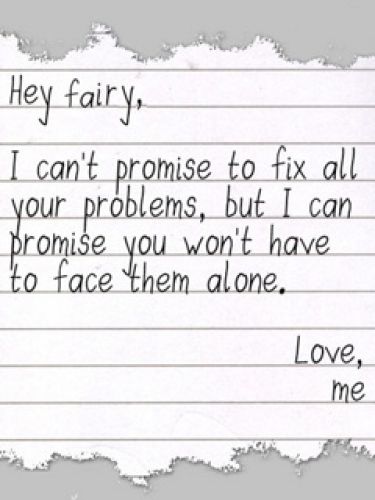 Hey fairy,
I can't promise to fix all
your problems, but I can
promise you won't have
to face them alone.
Love,
me